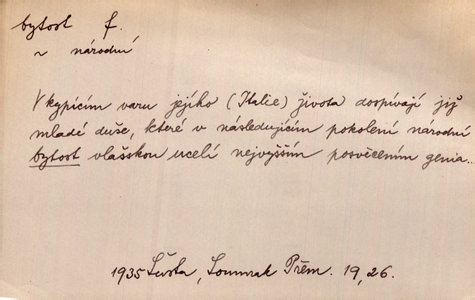 bytost f.
~ národní
V kypícím varu jejího (Italie) života dospívají již
mladé duše, které v následujícím pokolení národní
bytost vlašskou ucelí nejvyšším posvěcením genia..
1935 Šusta, Soumrak Přem. 19, 26.